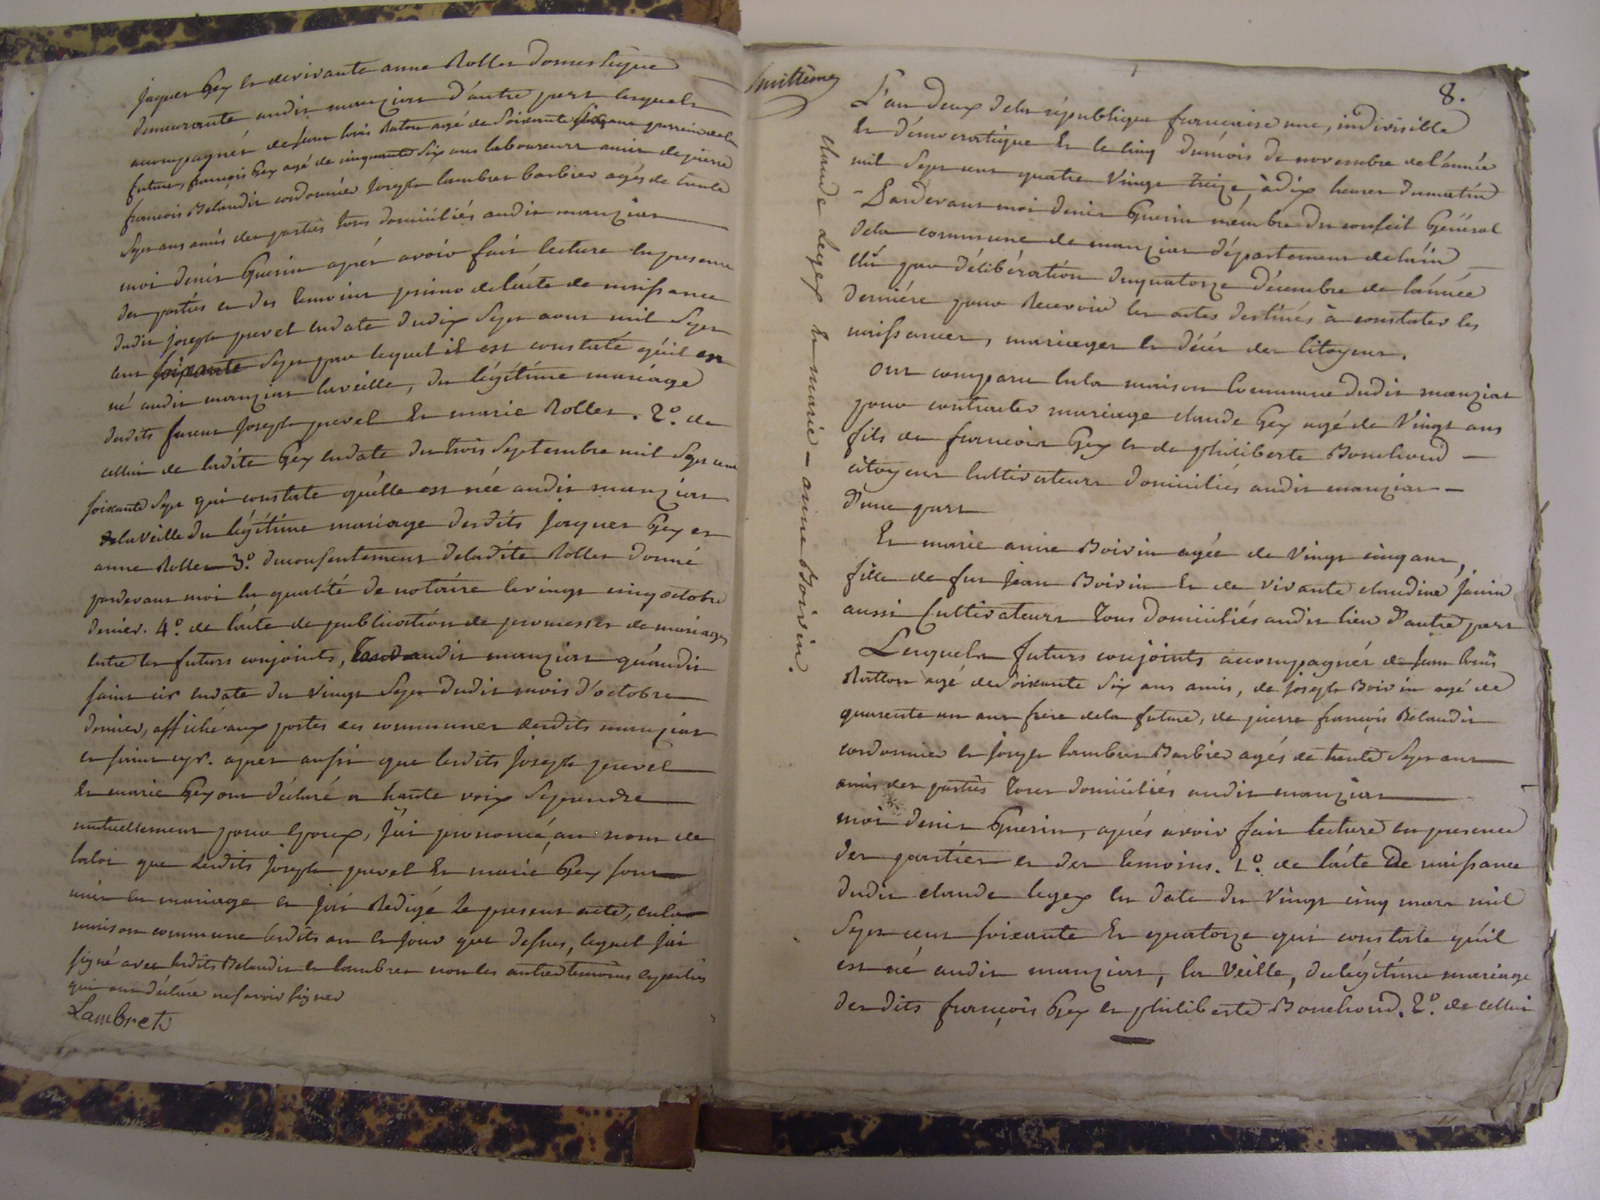 jaques Gex et de vivante anne Rollet domestique
demeurante audit manziat d'autre part lesquels
acompagnés de jean louis Raton agé de soixante six ans parrein de la
future, françois Gex agé de cinquante six ans laboureurs amis de pierre
françois Belaudir cordonnier joseph lambret barbier agés de trente
sept ans amis des partiés tous domiciliés audit manziat
moi denis Guerin aprés avoir fait lecture en presence
des parties et des temoins primo de l'acte de naissance
dudit joseph prevel en date du dix sept aout mil sept
cent soixante sept par lequel il est constaté qu'il est
né audit manziat la veille, du légitime mariage
dudits furent joseph prevel et marie Rollet. 2º. de
celluis de ladite Gex en date du trois septembre mil sept cent
soixante sept qui constate qu'elle est née audit manziat
la veille du légitime mariage desdits jacques Gex et
anne Rollet 3º. du consentement de ladite Rollet donné
pardevant moi en qualité de notaire le vingt cinq octobre
dernier. 4º. de l'acte de publication de promesses de mariages
entre les futurs conjoints, audit manziat qu'audit
saint cir en date du vingt sept dudit mois d'octobre
dernier, affiché aux portes des communes desdits manziat
et saint cyr. aprés aussi que lesdits joseph prevel
et marie Gex ont déclaré a haute voix se prendre
mutuellement pour Epoux, j'ai prononcé, au nom de
la loi que lesdits joseph prevel et marie Gex sont
unis en mariage et j'ai Redigé le present acte, en la
maison commune lesdits an et jour que dessus, lequel j'ai
signé avec lesdits Belaudir et lambret non les autres temoins et parties
qui ont déclaré ne savoir signer
Lambret
8.
huittieme
Claude Legex et marie - anne Boivin.
L'an deux de la république française une, indivisible
et démocratique et le cinq du mois de novembre de l'année
mil sept cent quatre vingt treize, à dix heures du matin
Pardevant moi denis Guerin membre du conseil Général
de la commune de manziat département de l'ain
élû par délibération du quatorze décembre de l'année
derniére pour Recevoir les actes destinés à constater les
naissances, mariages et décés des Citoyens.
ont comparu en la maison Commune dudit manziat
pour contracter mariage claude Gex agé de vingt ans
fils de francois Gex et de philiberte Bouchoud
citoyens cultivateurs domiciliés audit manziat
d'une part
Et marie anne Boivin agée de vingt cinq ans,
fille de fut jean Boivin et de vivante claudine janin
aussi cultivateurs tous domiciliés audit lieu d'autre part
Lesquels futurs conjoints acompagnés de jean louis
Ratton agé de soixante six ans amis, de joseph Boivin agé de
quarente un ans frere de la future, de pierre françois Belaudir
cordonnier et joseph lambret Barbier agés de trente sept ans
amis des partiés tous domiciliés audit manziat
moi denis Guerin, aprés avoir fait lecture en presence
des partiés et des temoins. 1º. de l'acte de naissance
dudit claude legex en date du vingt cinq mars mil
sept cent soixante et quatorze qui constate qu'il
est né audit manziat, la veille, du légitime mariage
desdits françois Gex et philiberte Bouchoud. 2º. de cellui